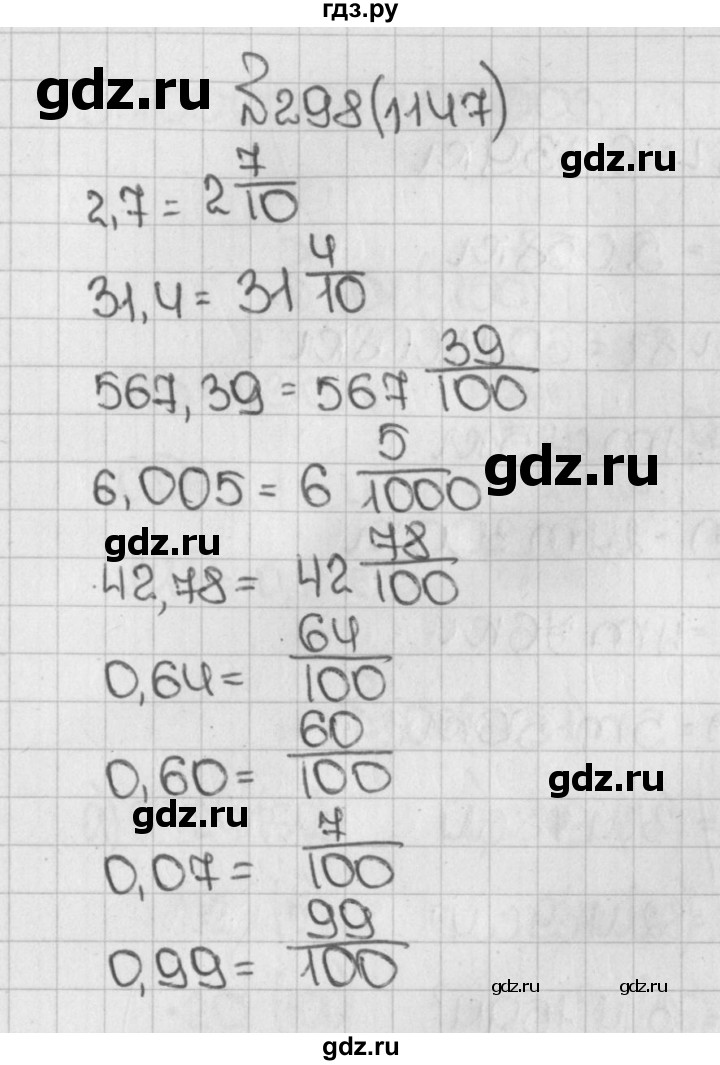 гдз.ру
gdz.ru
№298(1147)
gdz.ru
2,7 = 2 7/10
31,4 = 31 4/10
567,39 = 567 39/100
6,005 = 6 5/1000
gdz.ru
gdz.ru
42,78 = 42 78/100
0,64 = 64/100
0,60 = 60/100
gdz.ru
gdz.ru
0,07 = 7/100
0,99 = 99/100
gdz.ru gdz.ru
gdz.ru